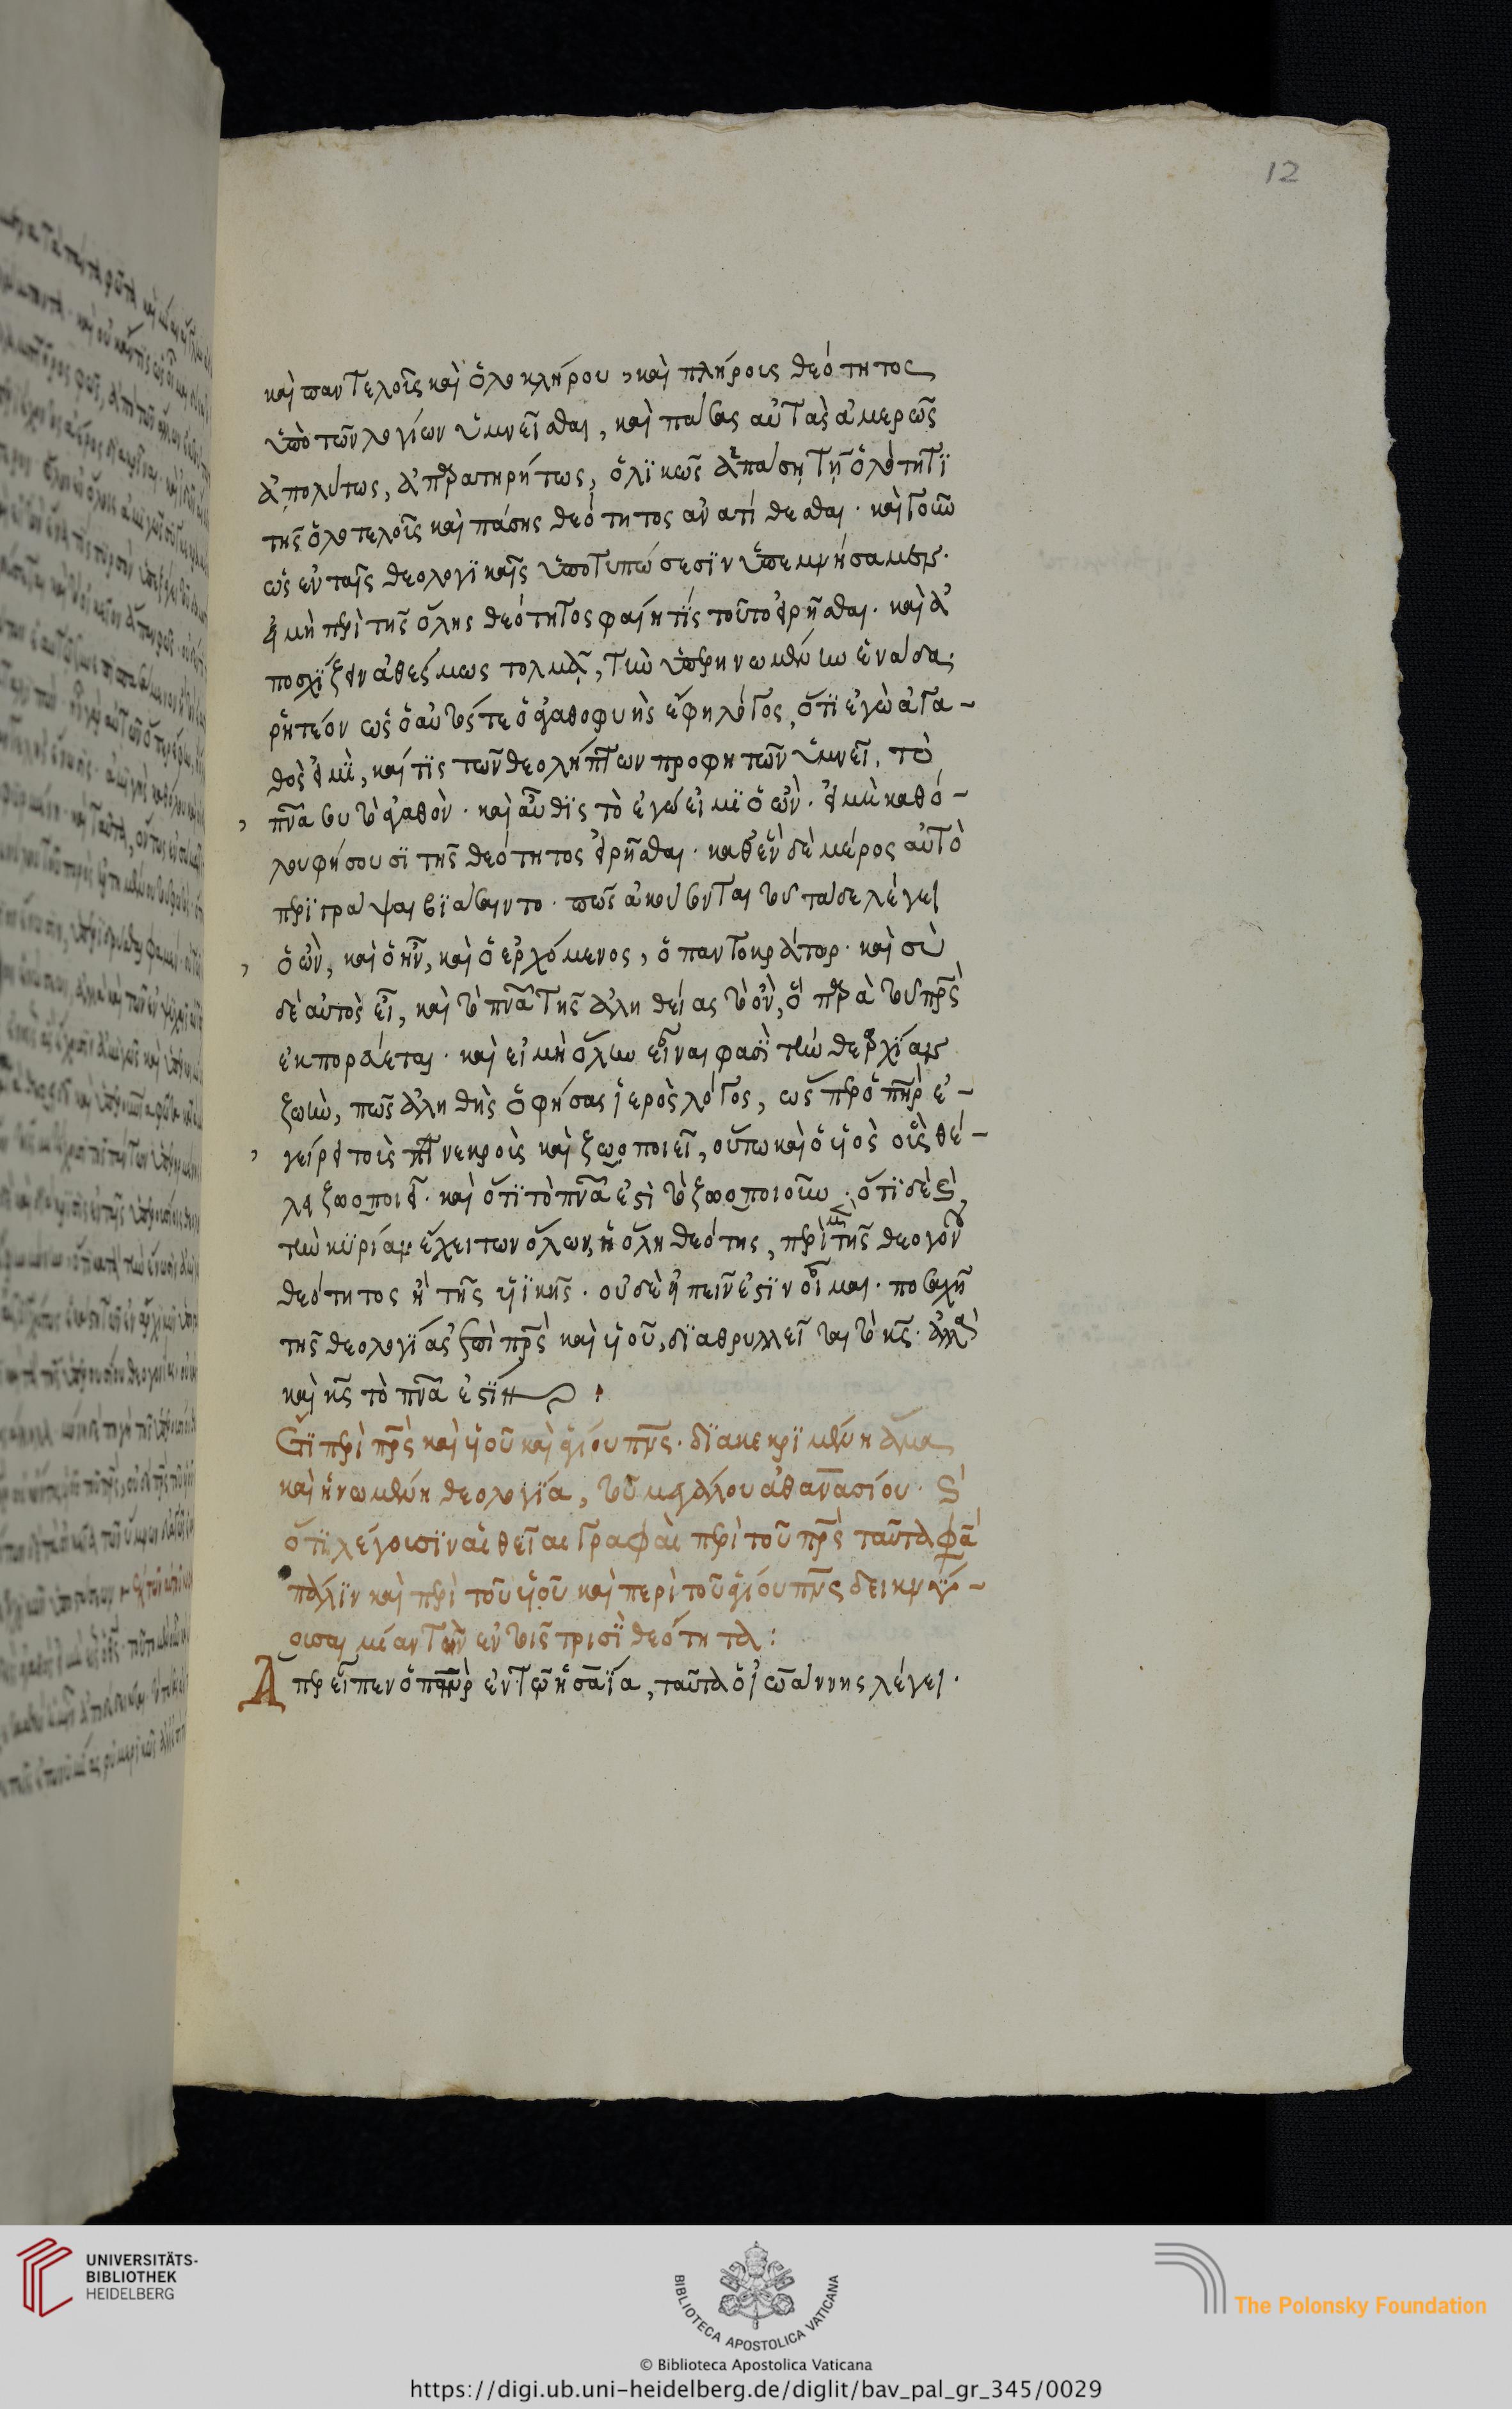 12
καὶ παντελοῦς καὶ ὁλοκλήρου, καὶ πλήρους θεότητος
ὑπὸ τῶν λογίων ὑμνεῖσθαι, καὶ πάσας αὐτὰς ἀμερῶς
ἀπολύτως, ἀπαρατηρήτως, ὁλικῶς ἁπάσῃ τῇ ὁλότητι
τῆς ὁλοτελοῦς καὶ πάσης θεότητος ἀνατίθεσθαι. καὶ γοῦν
ὡς ἐν ταῖς θεολογικαῖς ὑποτυπώσεσιν ὑπεμνήσαμεν.
εἰ μὴ περὶ τῆς ὅλης θεότητος φαίη τίς τοῦτο εἰρῆσθαι. καὶ ἀ
ποσχίζειν ἀθέσμως τολμᾷ, τὴν ὑπερηνωμένην ἑνάδα.
ῥητέον ὡς ὁ αὐτός τε ὁ ἀγαθοφυὴς ἔφη λόγος, ὅτι ἐγὼ ἀγα-
θός εἰμὶ, καί τις τῶν θεολήπτων προφητῶν ὑμνεῖ, τὸ
πνα σου τὸ ἀγαθὸν. καὶ αὖθις τὸ ἐγώ εἰμι ὁ ὤν. εἰ μὴ καθό-
λου φήσουσι τῆς θεότητος εἰρῆσθαι. καθ' ἓν δὲ μέρος αὐτὸ
περιγράψαι βιάσαιντο. πῶς ἀκούσονται τοῦ τάδε λέγει
ὁ ὢν, καὶ ὁ ἦν, καὶ ὁ ἐρχόμενος, ὁ παντοκράτωρ. καὶ σὺ
δὲ αὐτὸς εἶ, καὶ τὸ πνα τῆς ἀληθείας τὸ ὂν, ὃ παρὰ τοῦ πρς
ἐκπορεύεται. καὶ εἰ μὴ ὅλην εἶναι φασὶ τὴν θεαρχίαν
ζωὴν, πῶς ἀληθὴς ὁ φήσας ἱερὸς λόγος, ὥσπερ ὁ πηρ ἐ-
γείρει τοὺς νεκροὺς καὶ ζωοποιεῖ, οὕτω καὶ ὁ υἱὸς οὓς θέ-
λει ζωοποιεῖ. καὶ ὅτι τὸ πνα ἐστὶ τὸ ζωοποιοῦν. ὅτι δὲ καὶ
τὴν κυρίαν ἔχει των ὅλων, ἡ ὅλη θεότης, περὶ μὲν τῆς θεογόνου
θεότητος ἢ τῆς υἱικῆς. οὐδὲ εἰπεῖν ἐστὶν οἶμαι. ποσαχῆ
τῆς θεολογίας ἐπὶ πρς καὶ υἱοῦ, διαθρυλλεῖται τὸ κς. ἀλλὰ
καὶ κς τὸ πνα ἐστίν
Ἔτι περὶ πρς καὶ υἱοῦ καὶ ἁγίου πνς. διακεκριμένη ἅμα
καὶ ἡνωμένη θεολογία, τοῦ μεγάλου ἀθανασίου. καὶ
ὅτι λέγουσιν αἱ θεῖαι γραφαὶ περὶ τοῦ πρς ταῦτά φα
πάλιν καὶ περὶ τοῦ υἱοῦ καὶ περὶ τοῦ ἁγίου πνς δεικνύ-
ουσαι μίαν τὴν ἐν τοῖς τρισὶ θεότητα:
Ἅπερ εἶπεν ὁ πηρ ἐν τῷ ἡσαΐα, ταῦτα ὁ ἰωάννης λέγει.
UNIVERSITÄTS-
BIBLIOTHEK
HEIDELBERG
BIBLIOTECA APOSTOLICA VATICANA
The Polonsky Foundation
© Biblioteca Apostolica Vaticana
https://digi.ub.uni-heidelberg.de/diglit/bav_pal_gr_345/0029